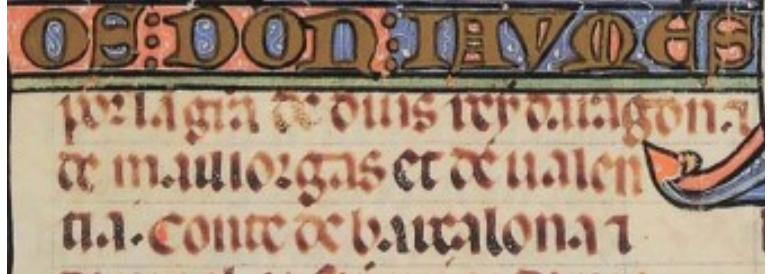 OS: DON: IAVMES
por la gr̃a de dius rey daragon ⁊
de mallorgas et de ualen
tia. Conte de barcalona ⁊